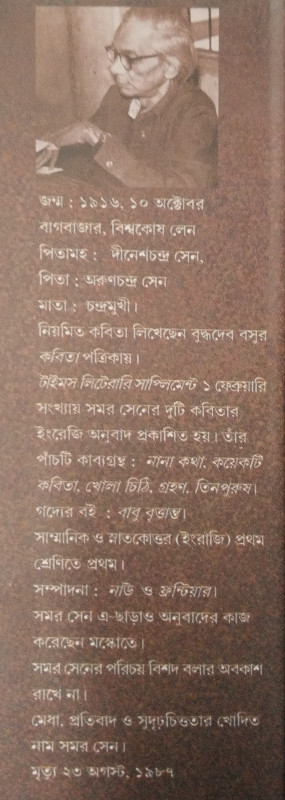 জন্ম : ১৯১৬, ১০ অক্টোবর
বাগবাজার, বিশ্বকোষ লেন
পিতামহ : দীনেশচন্দ্র সেন,
পিতা : অরুণচন্দ্র সেন
মাতা : চন্দ্রমুখী।
নিয়মিত কবিতা লিখেছেন বুদ্ধদেব বসুর
কবিতা পত্রিকায়।
টাইমস লিটেরারি সাপ্লিমেন্ট ১ ফেব্রুয়ারি
সংখ্যায় সমর সেনের দুটি কবিতার
ইংরেজি অনুবাদ প্রকাশিত হয়। তাঁর
পাঁচটি কাব্যগ্রন্থ : নানা কথা, কয়েকটি
কবিতা, খোলা চিঠি, গ্রহণ, তিনপুরুষ।
গদ্যের বই : বাবু বৃত্তান্ত।
সাম্মানিক ও স্নাতকোত্তর (ইংরাজি) প্রথম
শ্রেণিতে প্রথম।
সম্পাদনা : নাউ ও ফ্রন্টিয়ার।
সমর সেন এ-ছাড়াও অনুবাদের কাজ
করেছেন মস্কোতে।
সমর সেনের পরিচয় বিশদ বলার অবকাশ
রাখে না।
মেধা, প্রতিবাদ ও সুদৃঢ়চিত্ততার খোদিত
নাম সমর সেন।
মৃত্যু ২৩ অগস্ট, ১৯৮৭